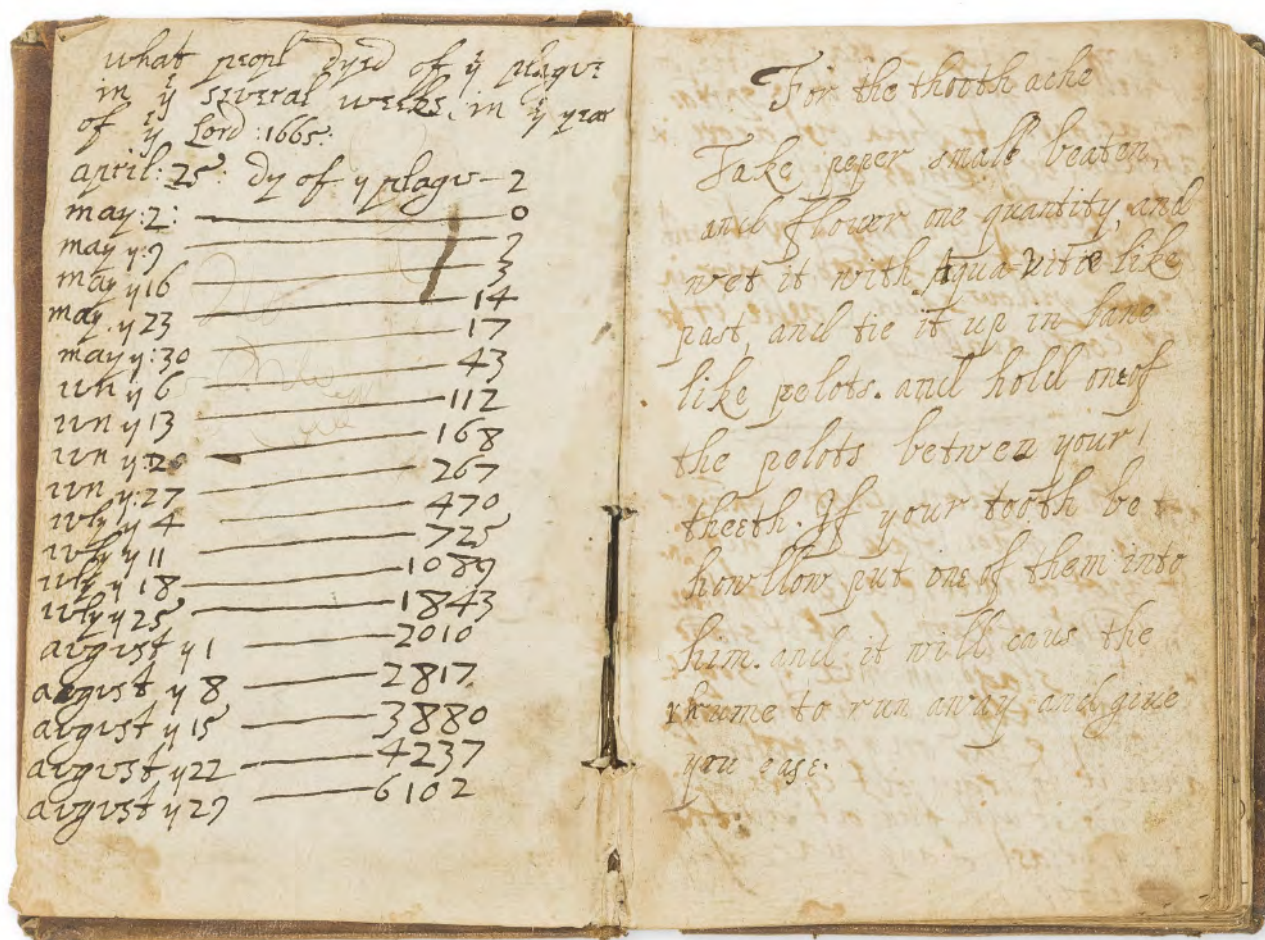 what peopl dyed of yͤ plagve
in yͤ several weeks, in yͤ year
of yͤ Lord :1665:
april: 25: dy of y plagv — 2
may: 2: — 0
may y: 9 — 9
may y 16 — 3
may. y 23 — 14
may y: 30 — 17
ivn y 6 — 43
ivn y 13 — 112
ivn y: 20 — 168
ivn y: 27 — 267
ivly y 4 — 470
ivly y 11 — 725
ivly y 18 — 1089
ivly y 25 — 1843
avgvst y 1 — 2010
avgvst y 8 — 2817
avgvst y 15 — 3880
avgvst y 22 — 4237
avgvst y 29 — 6102
For the thooth ache
Take peper small beaten,
and flower one quantity, and
wet it with Aqua-Vitie like
past, and tie it up in lane
like pelots. and hold one of
the pelots betwen your
theeth. If your tooth be
howllow put one of them into
him. and it will caus the
rhume to run away and giue
you ease.